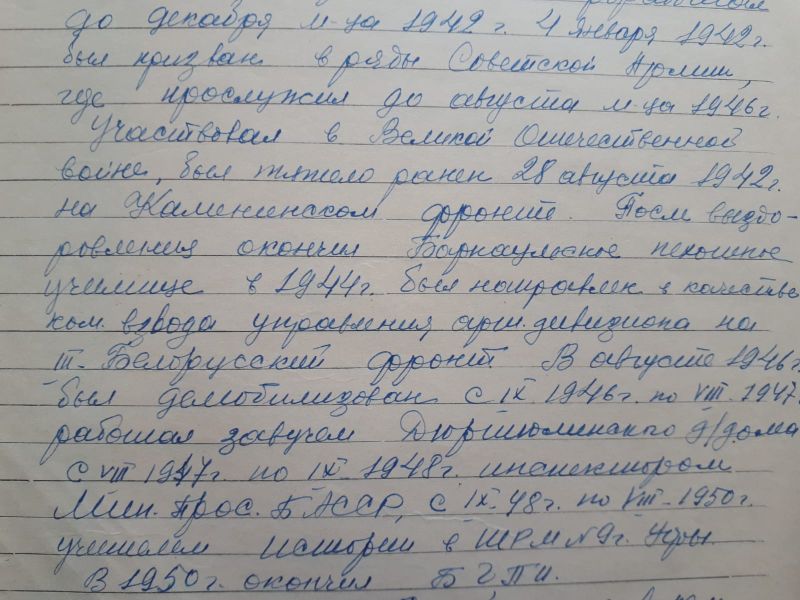 до декабря м-ца 1942 г. 4 января 1942 г.
был призван в ряды Советской Армии,
где прослужил до августа м-ца 1946 г.
Участвовал в Великой Отечественной
войне, был тяжело ранен 28 августа 1942 г.
на Калининском фронте. После выздо-
ровления окончил Барнаульское пехотное
училище в 1944 г. был направлен в качестве
ком. взвода управления арт. дивизиона на
III - Белорусский фронт. В августе 1946 г.
был демобилизован с IX. 1946 г. по VIII. 1947
работал завучем Дюртюлинского д/дома
с VIII 1947 г. по IX. 1948 г. инспектором
Мин. Прос. БАССР, с IX. 48 г. по VIII - 1950 г.
учителем истории в ШРМ № 9 г. Уфы.
В 1950 г. окончил БГПИ.